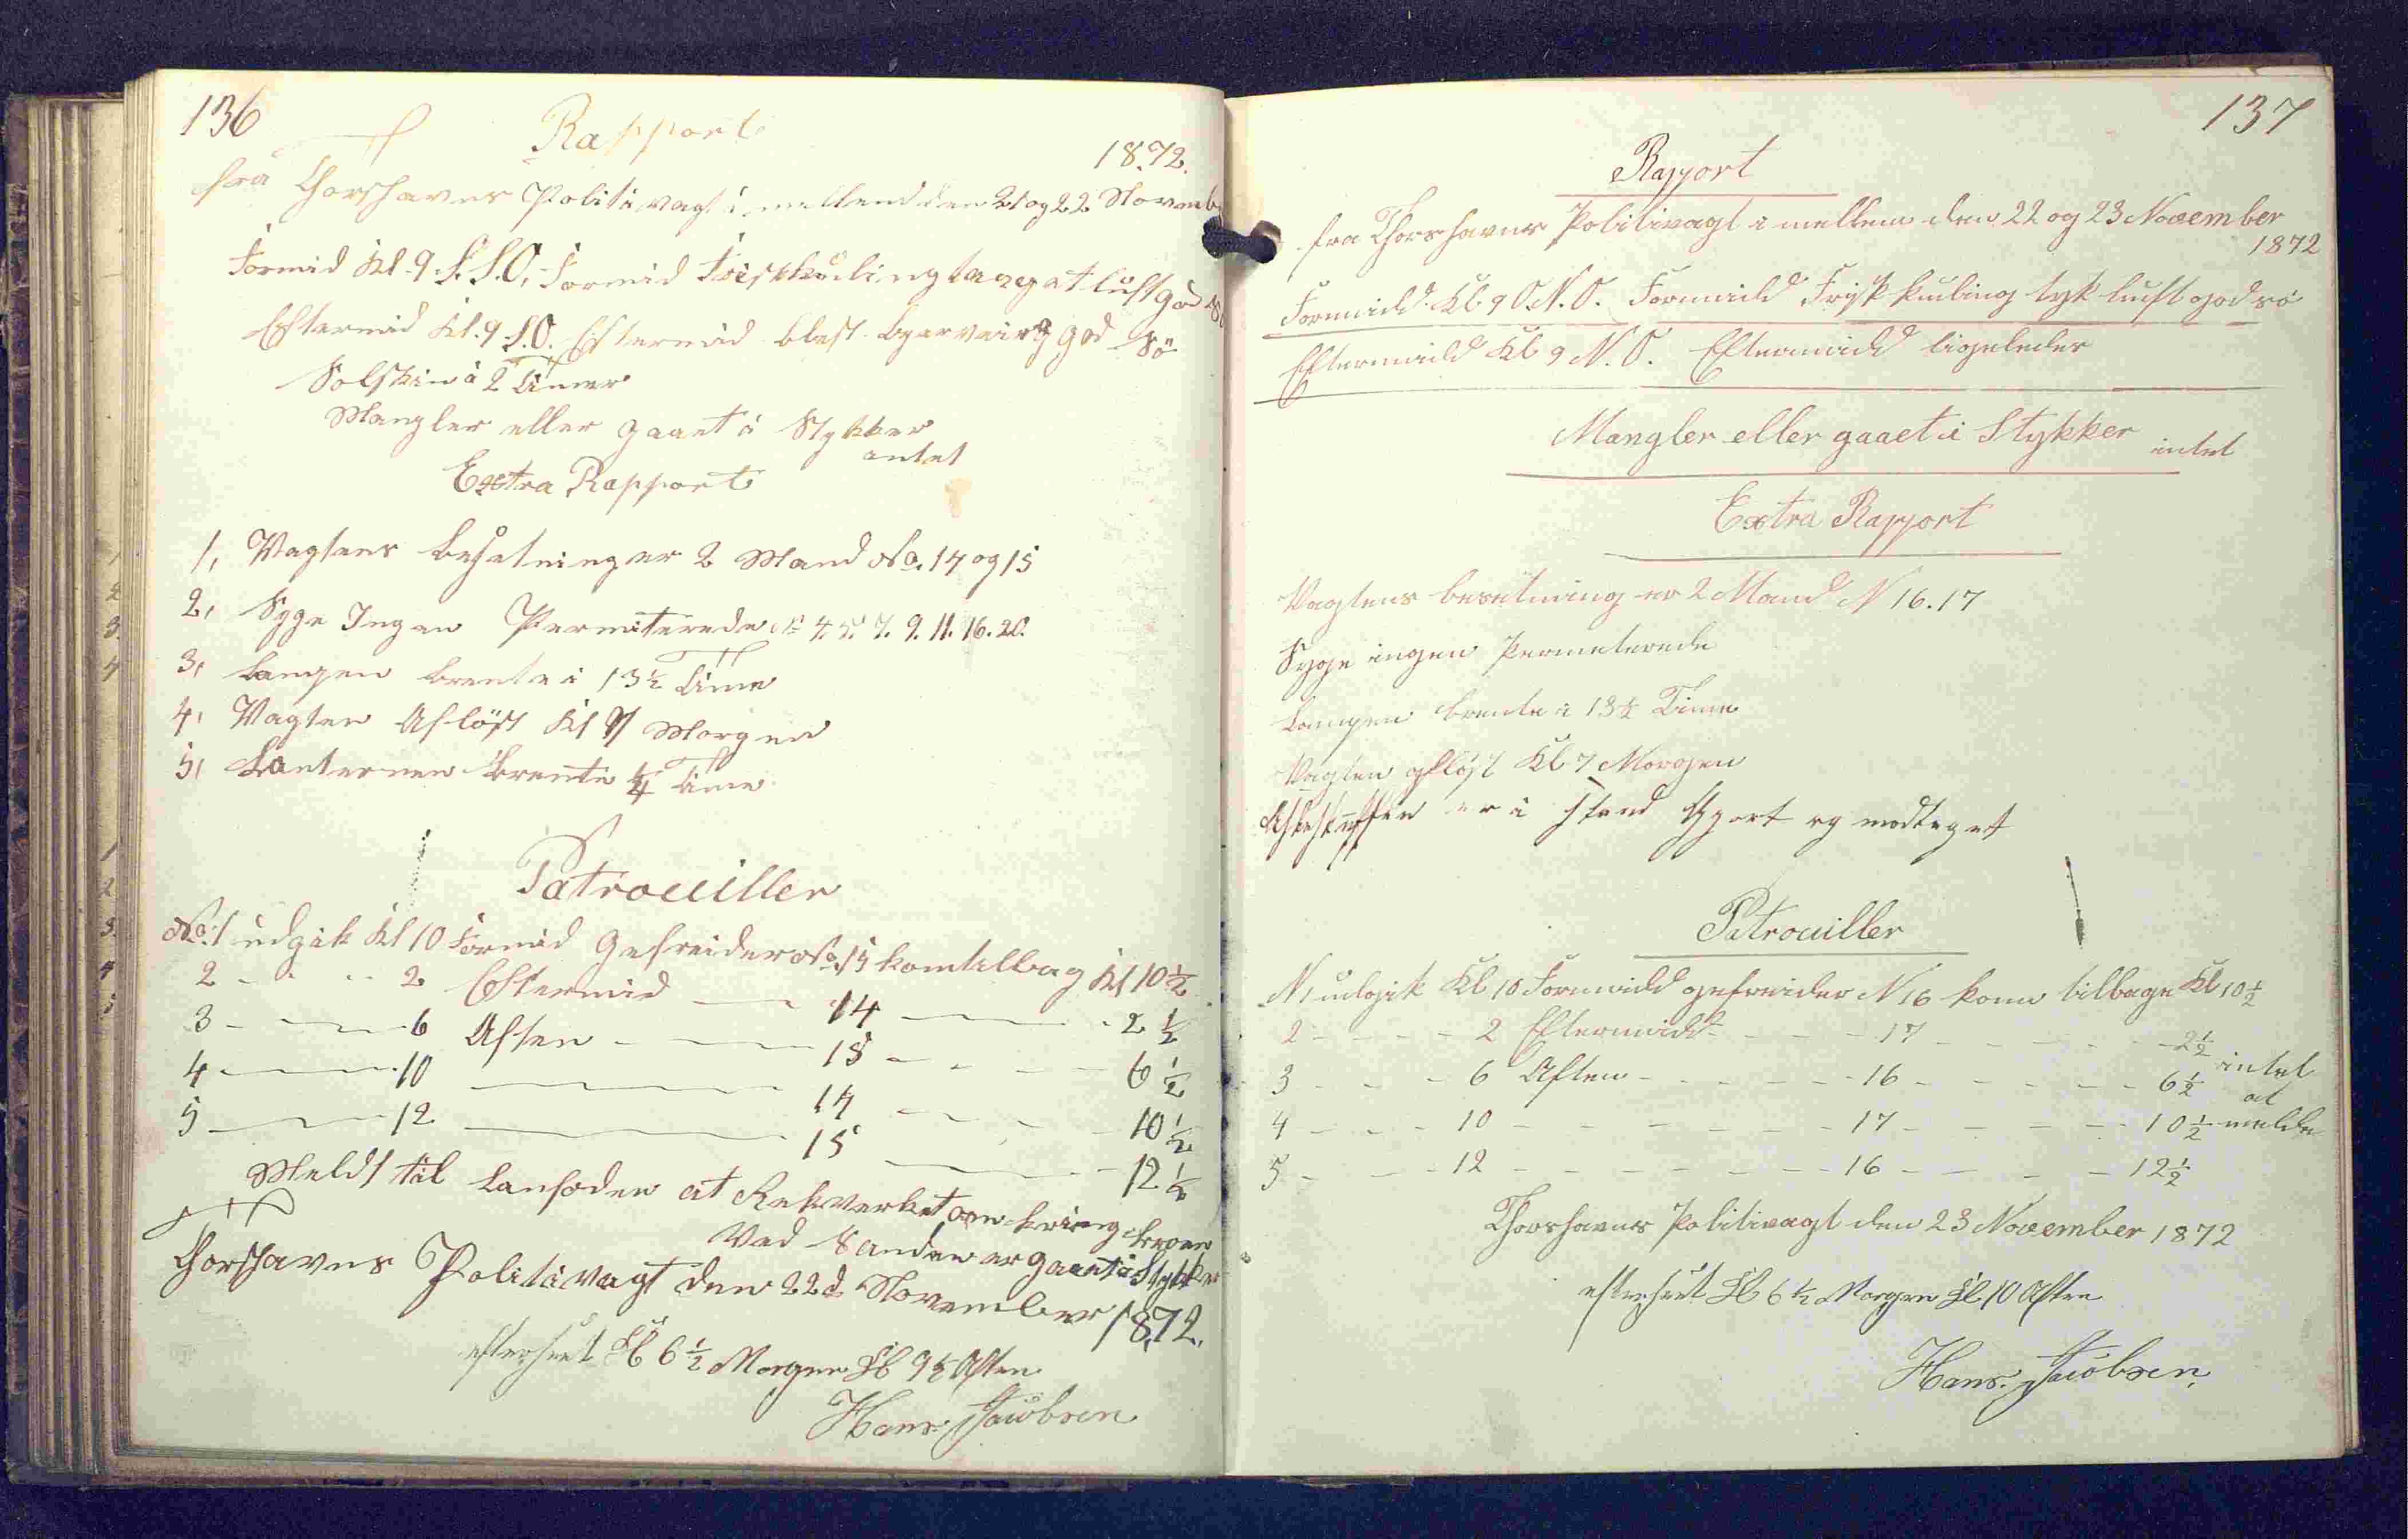 136
Rapport
1872.
fra Thorshavns Politivagt i mellem den 21 og 22 Novemb
Formid Kl. 9 S.S.O. Formid Friskkuling laagat luft god sø
Eftermid Kl. 9 S.O. Eftermid blest god Sö
Solskin i 2 Timer
Mangler eller gaaet i Stykker
intet
Extra Rapport
1, Vagtens besatning er 2 Mand No. 14 og 15
2, Syge Ingen Permiterede No 4. 5. 7. 9. 11. 16. 20.
3, Lampen brente i 13 1/2 Time
4, Vagten Aflöst Kl 7 Morgen
5, Lanternen brente Time
Patrouiller
No. 1 udgik Kl 10 Formid Gefreider No. 15 kom tilbag Kl 10 1/2
2 - - - 2 Eftermid - 14 - 2 1/2
3 - - - 6 Aften - - 15 - - - 6 1/2
4 - - 10 - - 14 - - - 10 1/2
5 - - 12 - - 15 - - - 12 1/2
Meldt til Lanfoden at Rekverket om kring
Ved Sanden er gaaet i Stykker
Thorshavns Politivagt den 22d November 1872.
efterseet Kl 6 1/2 Morgen Kl 9 1/2 Aften
Hans Jacobsen
137
Rapport
fra Thorshavns Politivagt i mellem den 22 og 23 November
1872
Formidd Kl 9 O.N.O. Formidd Frisk kuling tyk luft god sö
Eftermidd Kl 9 N.O. Eftermidd ligeledes
Mangler eller gaaet i Stykker intet
Extra Rapport
Vagtens besetning er 2 Mand N 16. 17
Syge ingen Permeterede
Lampen brente i 13 1/2 Time
Vagten afløst Kl 7 Morgen
er i stand gjort og modtaget
Patrouiller
N 1 udgik Kl 10 Formidd gefreider N 16 kom tilbage Kl 10 1/2
2 - - - - 2 Eftermidd - - - 17 - - - - - 2 1/2
3 - - - 6 Aften - - - - - 16 - - - - - 6 1/2 intet
4 - - - 10 - - - - - - - 17 - - - - - 10 1/2 at melde
5 - - - 12 - - - - - - - 16 - - - - 12 1/2
Thorshavns Politivagt den 23 November 1872
efterseet Kl 6 1/2 Morgen Kl 10 Aften
Hans Jacobsen